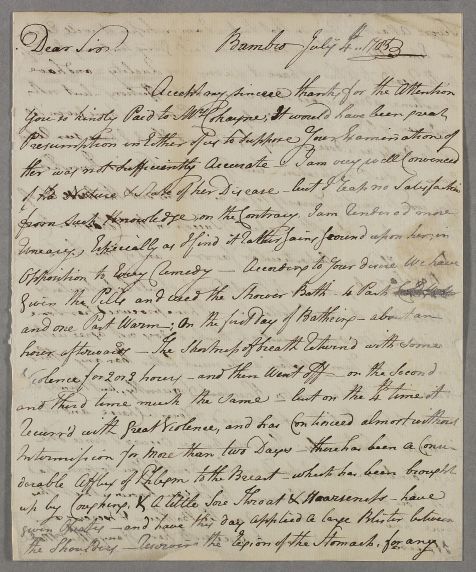 Dear Sir
Bambro July 4th 1783
Accept my sincere thanks for the Attention
You so kindly Paid to Mrs Thayne, It would have been great
Presumption in Either of us to suppose Your Examination of
Her was not sufficiently Accurate - I am very well Convinced
of the Nature & State of her Disease - but I reap no Satisfaction
from such knowledge, on the Contrary I am rendered more
uneasy, Especially as I find it rather gains ground upon her, in
Opposition to Every Remedy - According to Your desire We have
given the Pills and used the Shower Bath - 4 Parts
and one Part Warm -; On the first Day of Bathing - about an
hour afterwards - The Shortness of breath return'd with some
Violence for 2 or 3 hours - and then Went off - on the Second
and third time much the same - but on the 4th time it
Recurr'd with great Violence, and has Continued almost without
Intermission for more than two Days - there has been a Consi-
-derable Afflux of Phlegm to the Breast - which has been brought
up by Coughing, & A little Sore Throat & Hoarseness - have
given - and have this day applied a large Blister between
the Shoulders - the Region of the Stomach, for any